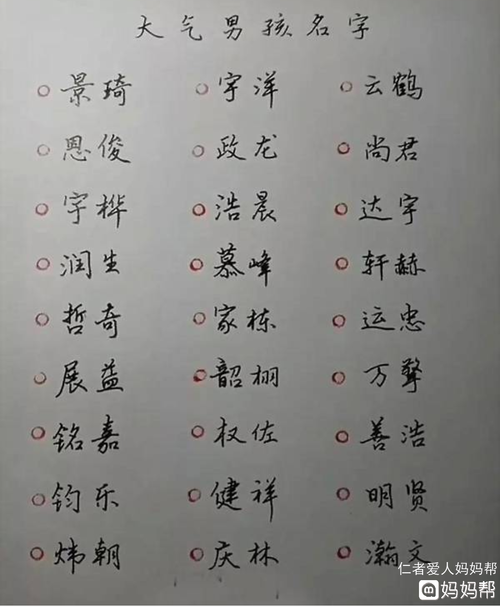 大气男孩名字
景琦 宇洋 云鹤
恩俊 政龙 尚君
宇桦 浩晨 达宇
润生 慕峰 轩赫
哲奇 家栋 运忠
展益 韶栩 万
铭嘉 权佐 善浩
钧乐 健祥 明贤
炜朝 庆林 瀚文
仁者爱人妈妈帮
妈妈帮